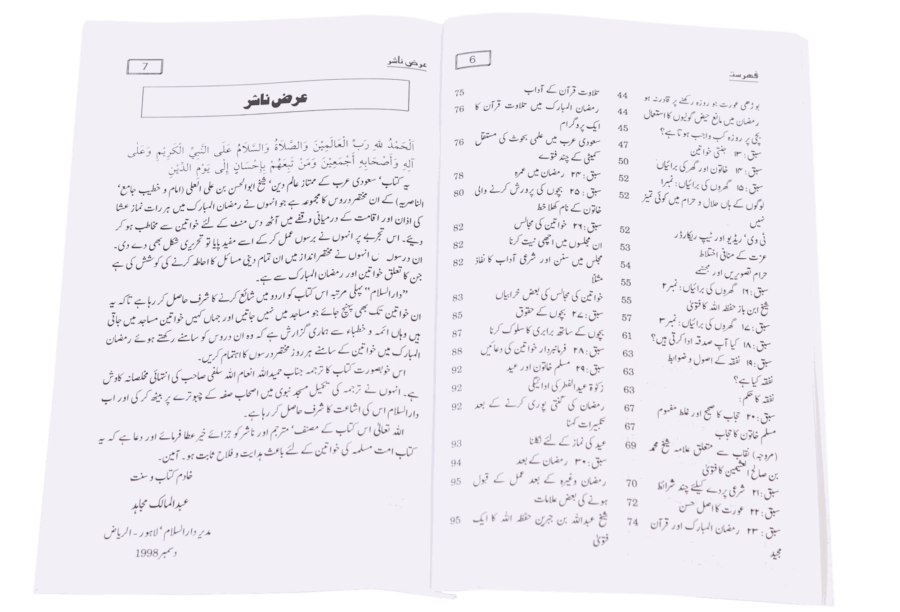 فہرست
6
بوڑھی عورت جو روزہ رکھنے پر قادر نہ ہو 44
رمضان میں مانع حیض گولیوں کا استعمال 44
بچی پر روزہ کب واجب ہوتا ہے؟ 45
سبق: ۱۳ جنتی خواتین 47
سبق: ۱۴ خاتون اور گھر کی برائیاں 50
سبق: ۱۵ گھروں کی برائیاں: نمبر۱ 52
لوگوں کے ہاں حلال و حرام میں کوئی تمیز 52
نہیں
ٹی وی‘ ریڈیو اور ٹیپ ریکارڈر 52
عزت کے منافی اختلاط 53
حرام تصویریں اور مجسمے 54
سبق: ۱۶ گھروں کی برائیاں: نمبر ۲ 55
شیخ ابن باز حفظہ اللہ کا فتویٰ 55
سبق: ۱۷ گھروں کی برائیاں: نمبر ۳ 57
سبق: ۱۸ کیا آپ صدقہ ادا کرتی ہیں؟ 61
سبق: ۱۹ نفقہ کے اصول و ضوابط 63
نفقہ کیا ہے؟ 63
نفقہ کا حکم: 63
سبق: ۲۰ حجاب کا صحیح اور غلط مفہوم 67
مسلم خاتون کا حجاب 67
(مروجہ) نقاب سے متعلق علامہ شیخ محمد 69
بن صالح العثیمین کا فتویٰ
سبق: ۲۱ شرعی پردے کیلئے چند شرائط 70
سبق: ۲۲ عورت کا اصل حسن 72
سبق: ۲۳ رمضان المبارک اور قرآن 74
مجید
تلاوت قرآن کے آداب 75
رمضان المبارک میں تلاوت قرآن کا 76
ایک پروگرام
سعودی عرب میں علمی بحوث کی مستقل 76
کمیٹی کے چند فتوے
سبق: ۲۴ رمضان میں عمرہ 78
سبق: ۲۵ بچوں کی پرورش کرنے والی 80
خاتون کے نام کھلا خط
سبق: ۲۶ خواتین کی مجالس 82
ان مجلسوں میں اچھی نیت کرنا 82
مجلس میں سنن اور شرعی آداب کا نفاذ 82
مثلاً
خواتین کی مجالس کی بعض خرابیاں 83
سبق: ۲۷ بچوں کے حقوق 85
بچوں کے ساتھ برابری کا سلوک کرنا 87
سبق: ۲۸ فرمانبردار خواتین کی دعائیں 88
سبق: ۲۹ مسلم خاتون اور عید 92
زکوٰۃ عیدالفطر کی ادائیگی 92
رمضان کی گنتی پوری کرنے کے بعد 92
تکبیرات کہنا
عید کی نماز کے لئے نکلنا 93
سبق: ۳۰ رمضان کے بعد 94
رمضان وغیرہ کے بعد عمل کے قبول 95
ہونے کی بعض علامات
شیخ عبداللہ بن جبرین حفظہ اللہ کا ایک 95
فتویٰ
عرض ناشر
7
عرض ناشر
اَلْحَمْدُ لِلّٰهِ رَبِّ الْعَالَمِيْنَ وَالصَّلَاةُ وَالسَّلَامُ عَلَى النَّبِيِّ الْكَرِيْمِ وَعَلَى
آلِهِ وَأَصْحَابِهِ أَجْمَعِيْنَ وَمَنْ تَبِعَهُمْ بِإِحْسَانٍ إِلَى يَوْمِ الدِّيْنِ
یہ کتاب‘ سعودی عرب کے ممتاز عالم دین‘ شیخ ابوالحسن بن علی العلی (امام و خطیب جامع‘
الناصریہ) کے ان مختصر دروس کا مجموعہ ہے جو انہوں نے رمضان المبارک میں ہر رات نماز عشا
کی اذان اور اقامت کے درمیانی وقفے میں آٹھ دس منٹ کے لئے خواتین سے مخاطب ہو کر
دیئے۔ اس تجربے پر انہوں نے برسوں عمل کر کے اسے مفید پایا تو تحریری شکل بھی دے دی۔
ان درسوں میں انہوں نے مختصر انداز میں ان تمام دینی مسائل کا احاطہ کرنے کی کوشش کی ہے
جن کا تعلق خواتین اور رمضان المبارک سے ہے۔
"دارالسلام" پہلی مرتبہ اس کتاب کو اردو میں شائع کرنے کا شرف حاصل کر رہا ہے تاکہ یہ
ان خواتین تک بھی پہنچ جائے جو مساجد میں نہیں جاتیں اور جہاں کہیں خواتین مساجد میں جاتی
ہیں وہاں ائمہ و خطباء سے ہماری گزارش ہے کہ وہ ان دروس کو سامنے رکھتے ہوئے رمضان
المبارک میں خواتین کے سامنے ہر روز مختصر درسوں کا اہتمام کریں۔
اس خوبصورت کتاب کا ترجمہ جناب حمیداللہ انعام اللہ سلفی صاحب کی انتہائی مخلصانہ کاوش
ہے۔ انہوں نے ترجمہ کی تکمیل مسجد نبوی میں اصحاب صفہ کے چبوترے پر بیٹھ کر کی اور اب
دارالسلام اس کی اشاعت کا شرف حاصل کر رہا ہے۔
اللہ تعالیٰ اس کتاب کے مصنف‘ مترجم اور ناشر کو جزائے خیر عطا فرمائے اور دعا ہے کہ یہ
کتاب امت مسلمہ کی خواتین کے لئے باعث ہدایت و فلاح ثابت ہو۔ آمین۔
خادم کتاب و سنت
عبدالمالک مجاہد
مدیر دارالسلام‘ لاہور - الریاض
دسمبر 1998